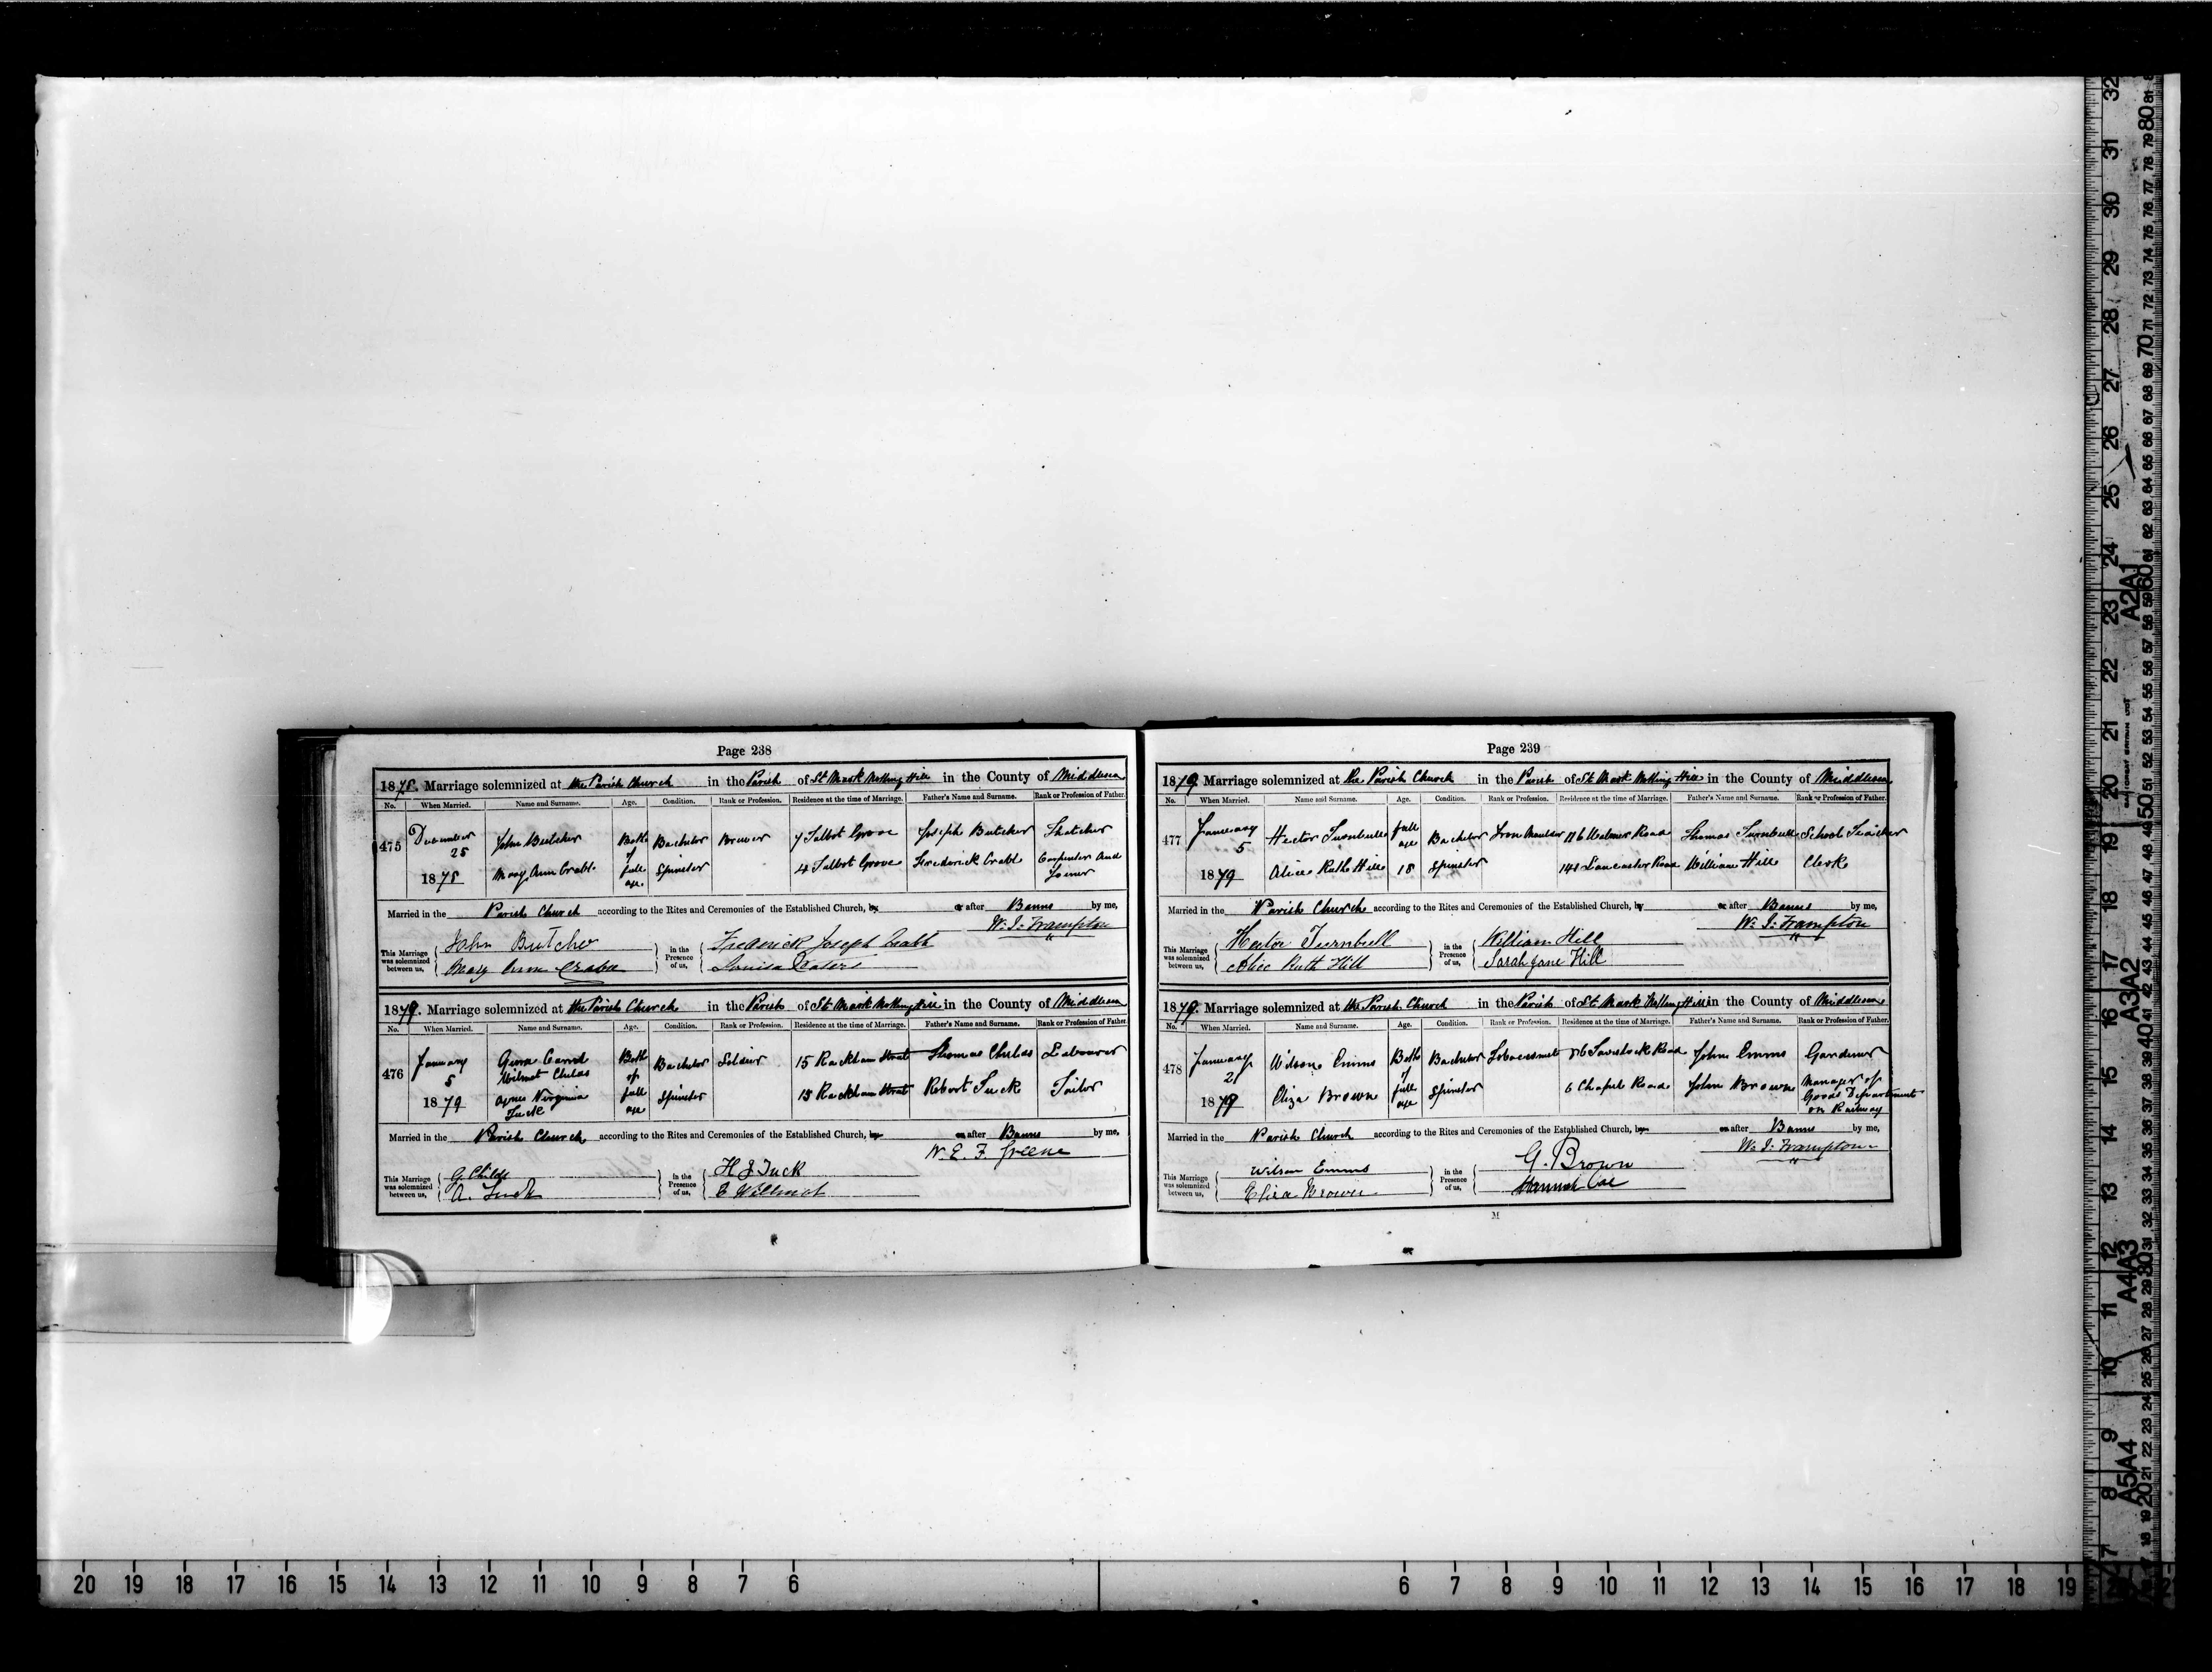 Page 238
1878. Marriage solemnized at the Parish Church in the Parish of St Mark Notting Hill in the County of Middlesex
No. When Married. Name and Surname. Age. Condition. Rank or Profession. Residence at the time of Marriage. Father's Name and Surname. Rank or Profession of Father.
475 December 25 1878 John Butcher Both of full age Bachelor Brewer 7 Talbot Grove Joseph Butcher Thatcher
Mary Ann Crabb Spinster 4 Talbot Grove Frederick Crabb Carpenter and Joiner
Married in the Parish Church according to the Rites and Ceremonies of the Established Church, by or after Banns by me,
W. J. Frampton
This Marriage was solemnized between us, John Butcher in the Presence of us, Frederick Joseph Crabb
Mary Ann Crabb Louisa
1879. Marriage solemnized at the Parish Church in the Parish of St Mark Notting Hill in the County of Middlesex
No. When Married. Name and Surname. Age. Condition. Rank or Profession. Residence at the time of Marriage. Father's Name and Surname. Rank or Profession of Father.
476 January 5 1879 Wilmot Childs Both of full age Bachelor Soldier 15 Rackham Street Thomas Childs Labourer
Agnes Virginia Tuck Spinster 15 Rackham Street Robert Tuck Tailor
Married in the Parish Church according to the Rites and Ceremonies of the Established Church, by or after Banns by me,
W. E. F. Greene
This Marriage was solemnized between us, G. Childs in the Presence of us, H J Tuck
A. Tuck E Willmot
Page 239
1879. Marriage solemnized at the Parish Church in the Parish of St Mark Notting Hill in the County of Middlesex
No. When Married. Name and Surname. Age. Condition. Rank or Profession. Residence at the time of Marriage. Father's Name and Surname. Rank or Profession of Father.
477 January 5 1879 Hector Turnbull full age Bachelor Iron Moulder Road Thomas Turnbull School Teacher
Alice Ruth Hill 18 Spinster 141 Lancaster Road William Hill Clerk
Married in the Parish Church according to the Rites and Ceremonies of the Established Church, by or after Banns by me,
W. J. Frampton
This Marriage was solemnized between us, Hector Turnbull in the Presence of us, William Hill
Alice Ruth Hill Sarah Jane Hill
1879. Marriage solemnized at the Parish Church in the Parish of St Mark Notting Hill in the County of Middlesex
No. When Married. Name and Surname. Age. Condition. Rank or Profession. Residence at the time of Marriage. Father's Name and Surname. Rank or Profession of Father.
478 January 1879 Wilson Emms Both of full age Bachelor Tobacconist Tavistock Road John Emms Gardener
Eliza Brown Spinster 6 Chapel Road John Brown Manager of Goods Department on Railway
Married in the Parish Church according to the Rites and Ceremonies of the Established Church, by or after Banns by me,
W. J. Frampton
This Marriage was solemnized between us, Wilson Emms in the Presence of us, G. Brown
Eliza Brown Hannah
M
20 19 18 17 16 15 14 13 12 11 10 9 8 7 6 6 7 8 9 10 11 12 13 14 15 16 17 18 19